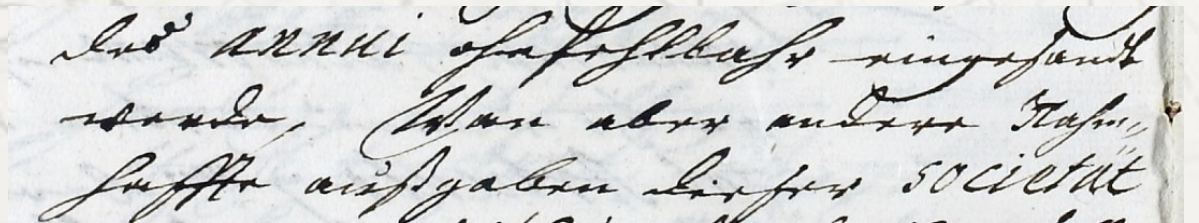 des annui ohnfehlbahr eingesandt
werde, Wan aber andere Nahm-
haffte außgaben dieser societät